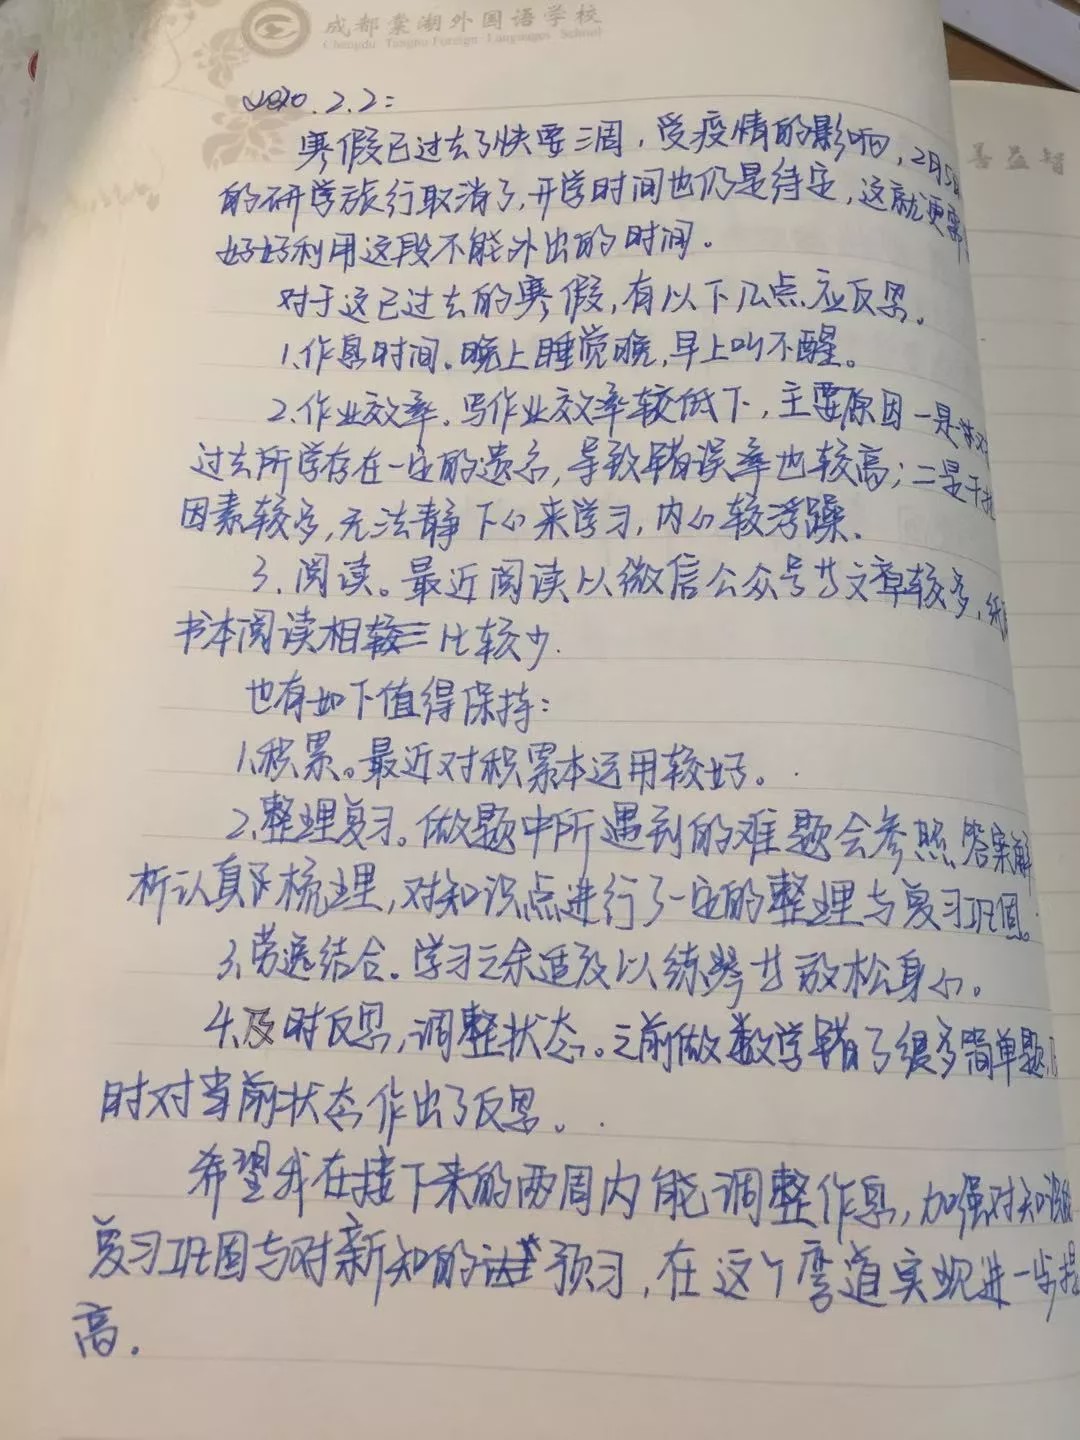 成都棠湖外国语学校
Chengdu Tanghu Foreign Languages School
善益智
2020.2.2:
寒假已过去了快要三周,受疫情的影响,2月5
的研学旅行取消了,开学时间也仍是待定,这就更需
好好利用这段不能外出的时间。
对于这已过去的寒假,有以下几点应反思。
1.作息时间。晚上睡觉晚,早上叫不醒。
2.作业效率。写作业效率较低下,主要原因一是对
过去所学存在一定的遗忘,导致错误率也较高;二是干扰
因素较多,无法静下心来学习,内心较浮躁.
3.阅读。最近阅读以微信公众号为文章较多,纸
书本阅读相较三比较少.
也有如下值得保持:
1.积累。最近对积累本运用较好。
2.整理复习。做题中所遇到的难题会参照答案解
析认真梳理,对知识点进行了一定的整理与复习巩固。
3.劳逸结合。学习之余适及以练琴为放松身心。
4.及时反思,调整状态。之前做数学错了很多简单题,
时对当前状态作出了反思。
希望我在接下来的两周内能调整作息,加强对知识
复习巩固与对新知的预习,在这个弯道实现进一步提
高.